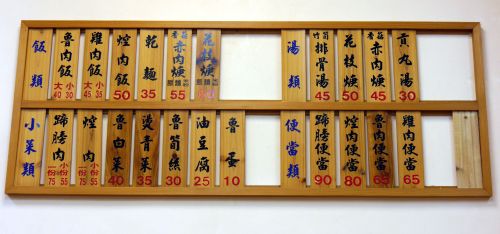 飯類
魯肉飯 大40 小30
雞肉飯 大45 小35
焢肉飯 50
乾麵 35
香菇赤肉焿 55
花枝焿
湯類
竹筍排骨湯 45
花枝焿 50
香菇赤肉焿 45
貢丸湯 30
小菜類
蹄膀肉 一份75 小份55
焢肉 一份75 小份55
魯白菜 40
燙青菜 35
魯筍焦 30
油豆腐 25
魯蛋 10
便當類
蹄膀便當 90
焢肉便當 80
魯肉便當 65
雞肉便當 65